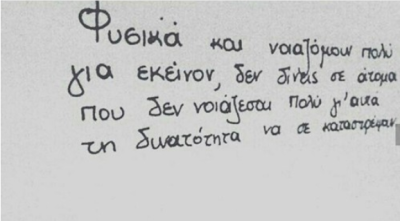 Φυσικά και νοιαζόμουν πολύ
για εκείνον, δεν δίνεις σε άτομα
που δεν νοιάζεσαι πολύ γι'αυτά
τη δυνατότητα να σε καταστρέψαν